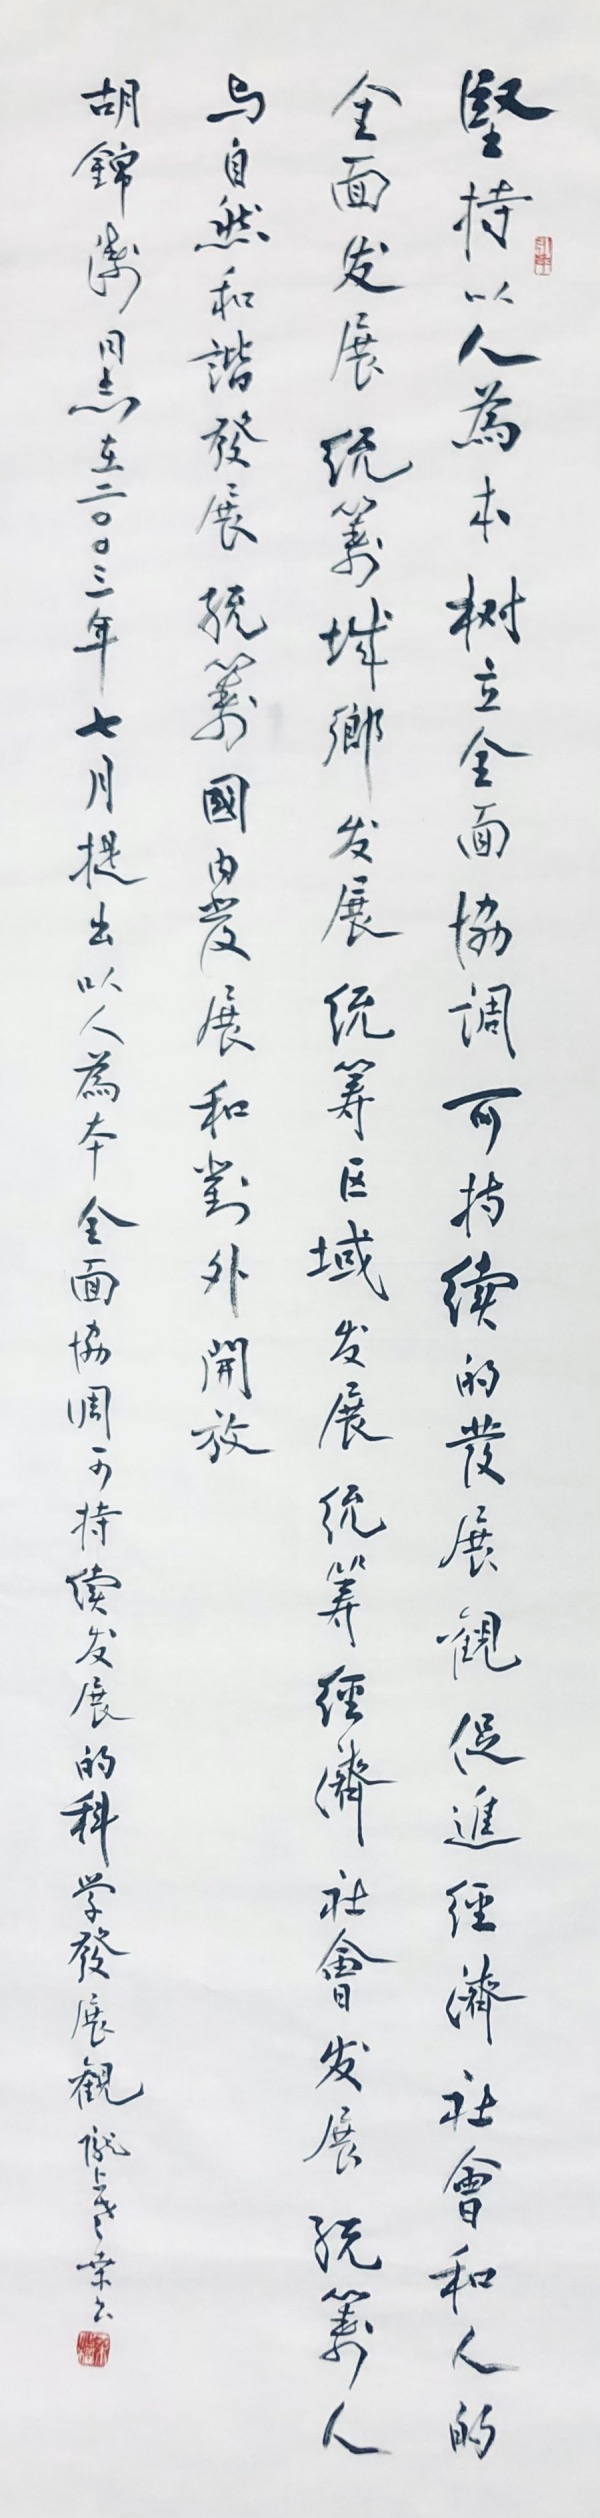 堅持以人為本树立全面協调可持续的发展觀促進經濟社會和人的
全面发展统籌城鄉发展统筹区域发展统筹經濟社會发展统籌人
与自然和諧發展统籌國内发展和對外開放
胡錦濤同志在二〇〇三年七月提出以人為本全面協调可持续发展的科学發展觀陇上